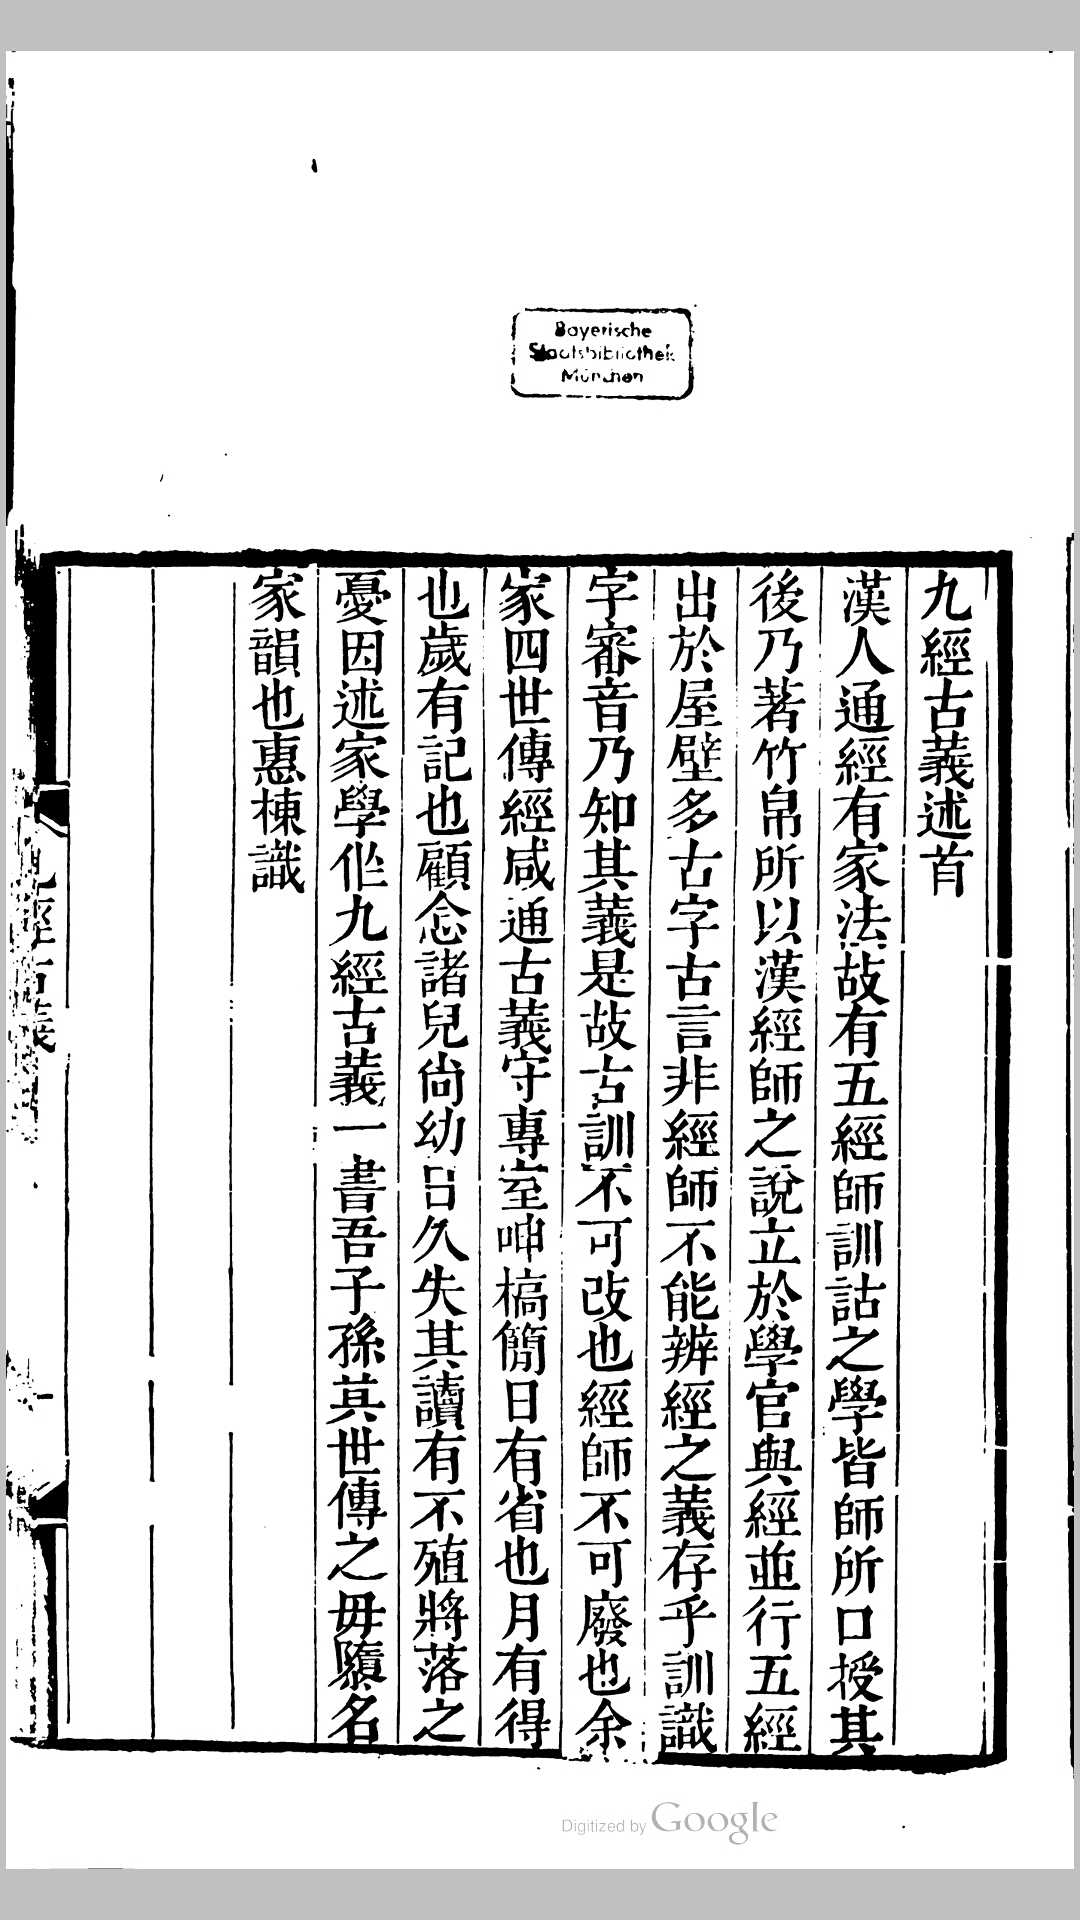 Bayerische
Staatsbibliothek
München
九經古義述首
漢人通經有家法故有五經師訓詁之學皆師所口授其
後乃著竹帛所以漢經師之說立於學官與經並行五經
出於屋壁多古字古言非經師不能辨經之義存乎訓識
字審音乃知其義是故古訓不可改也經師不可廢也余
家四世傳經咸通古義守專室呻槁簡日有省也月有得
也歲有記也顧念諸兒尚幼日久失其讀有不殖將落之
憂因述家學作九經古義一書吾子孫其世傳之毋隳名
家韻也惠棟識
九經古義
一
Digitized by Google